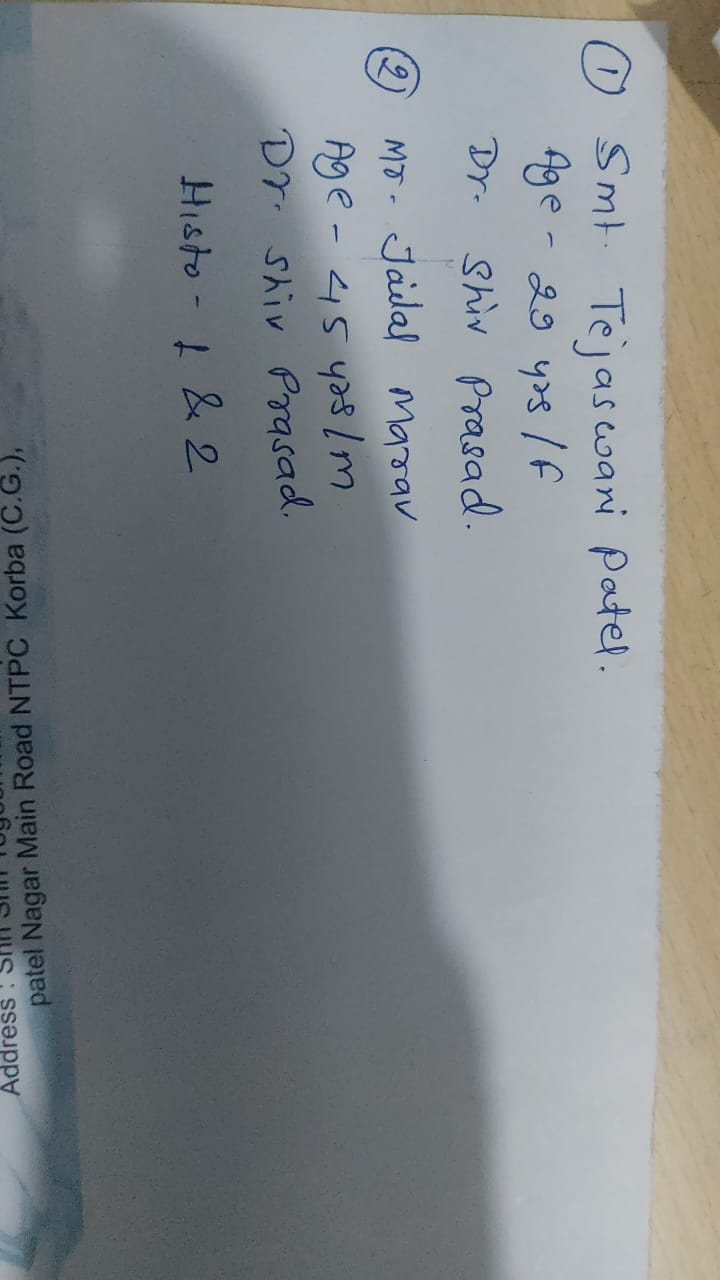 ① Smt. Tejaswani Patel.
Age - 29 yrs/f
Dr. Shiv Prasad.
② Mr. Jailal Marav
Age - 45 yrs/m
Dr. Shiv Prasad.
Histo - 1 & 2
Address : Shri
patel Nagar Main Road NTPC Korba (C.G.),